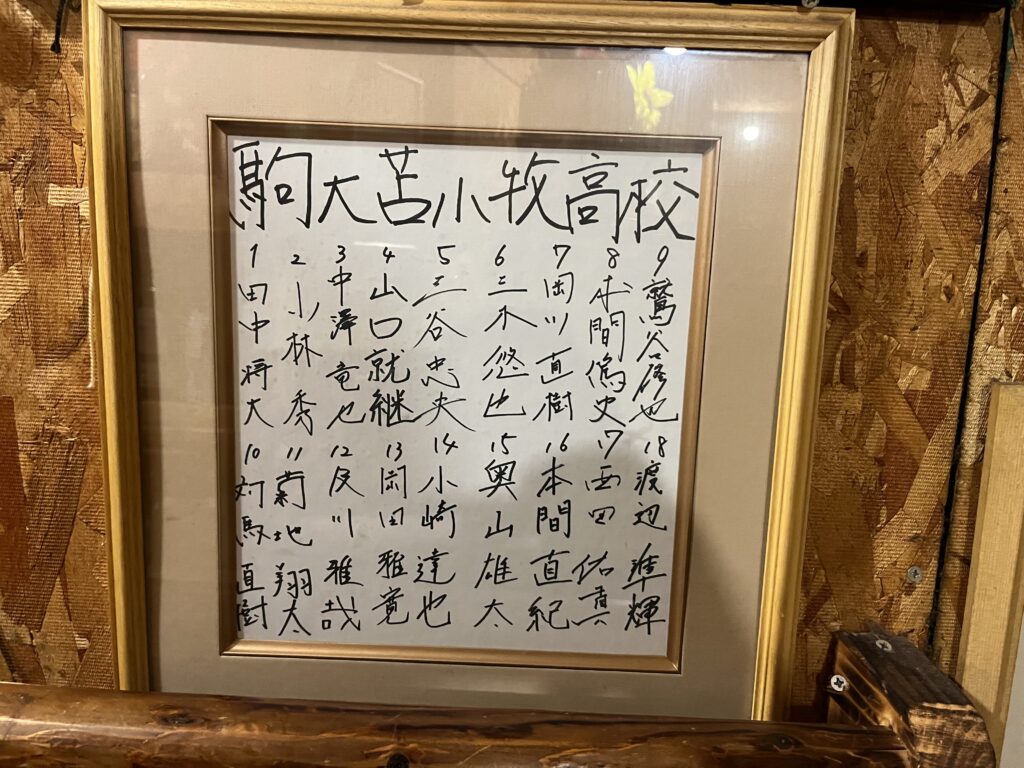 駒大苫小牧高校
1 田中将大
2 小林秀
3 中澤竜也
4 山口就継
5 三谷忠央
6 三木悠也
7 岡川直樹
8 本間篤史
9 鷲谷修也
10 対馬直樹
11 菊地翔太
12 及川雅哉
13 岡田雅寛
14 小崎達也
15 奥山雄太
16 本間直紀
17 西田佑真
18 渡辺準輝